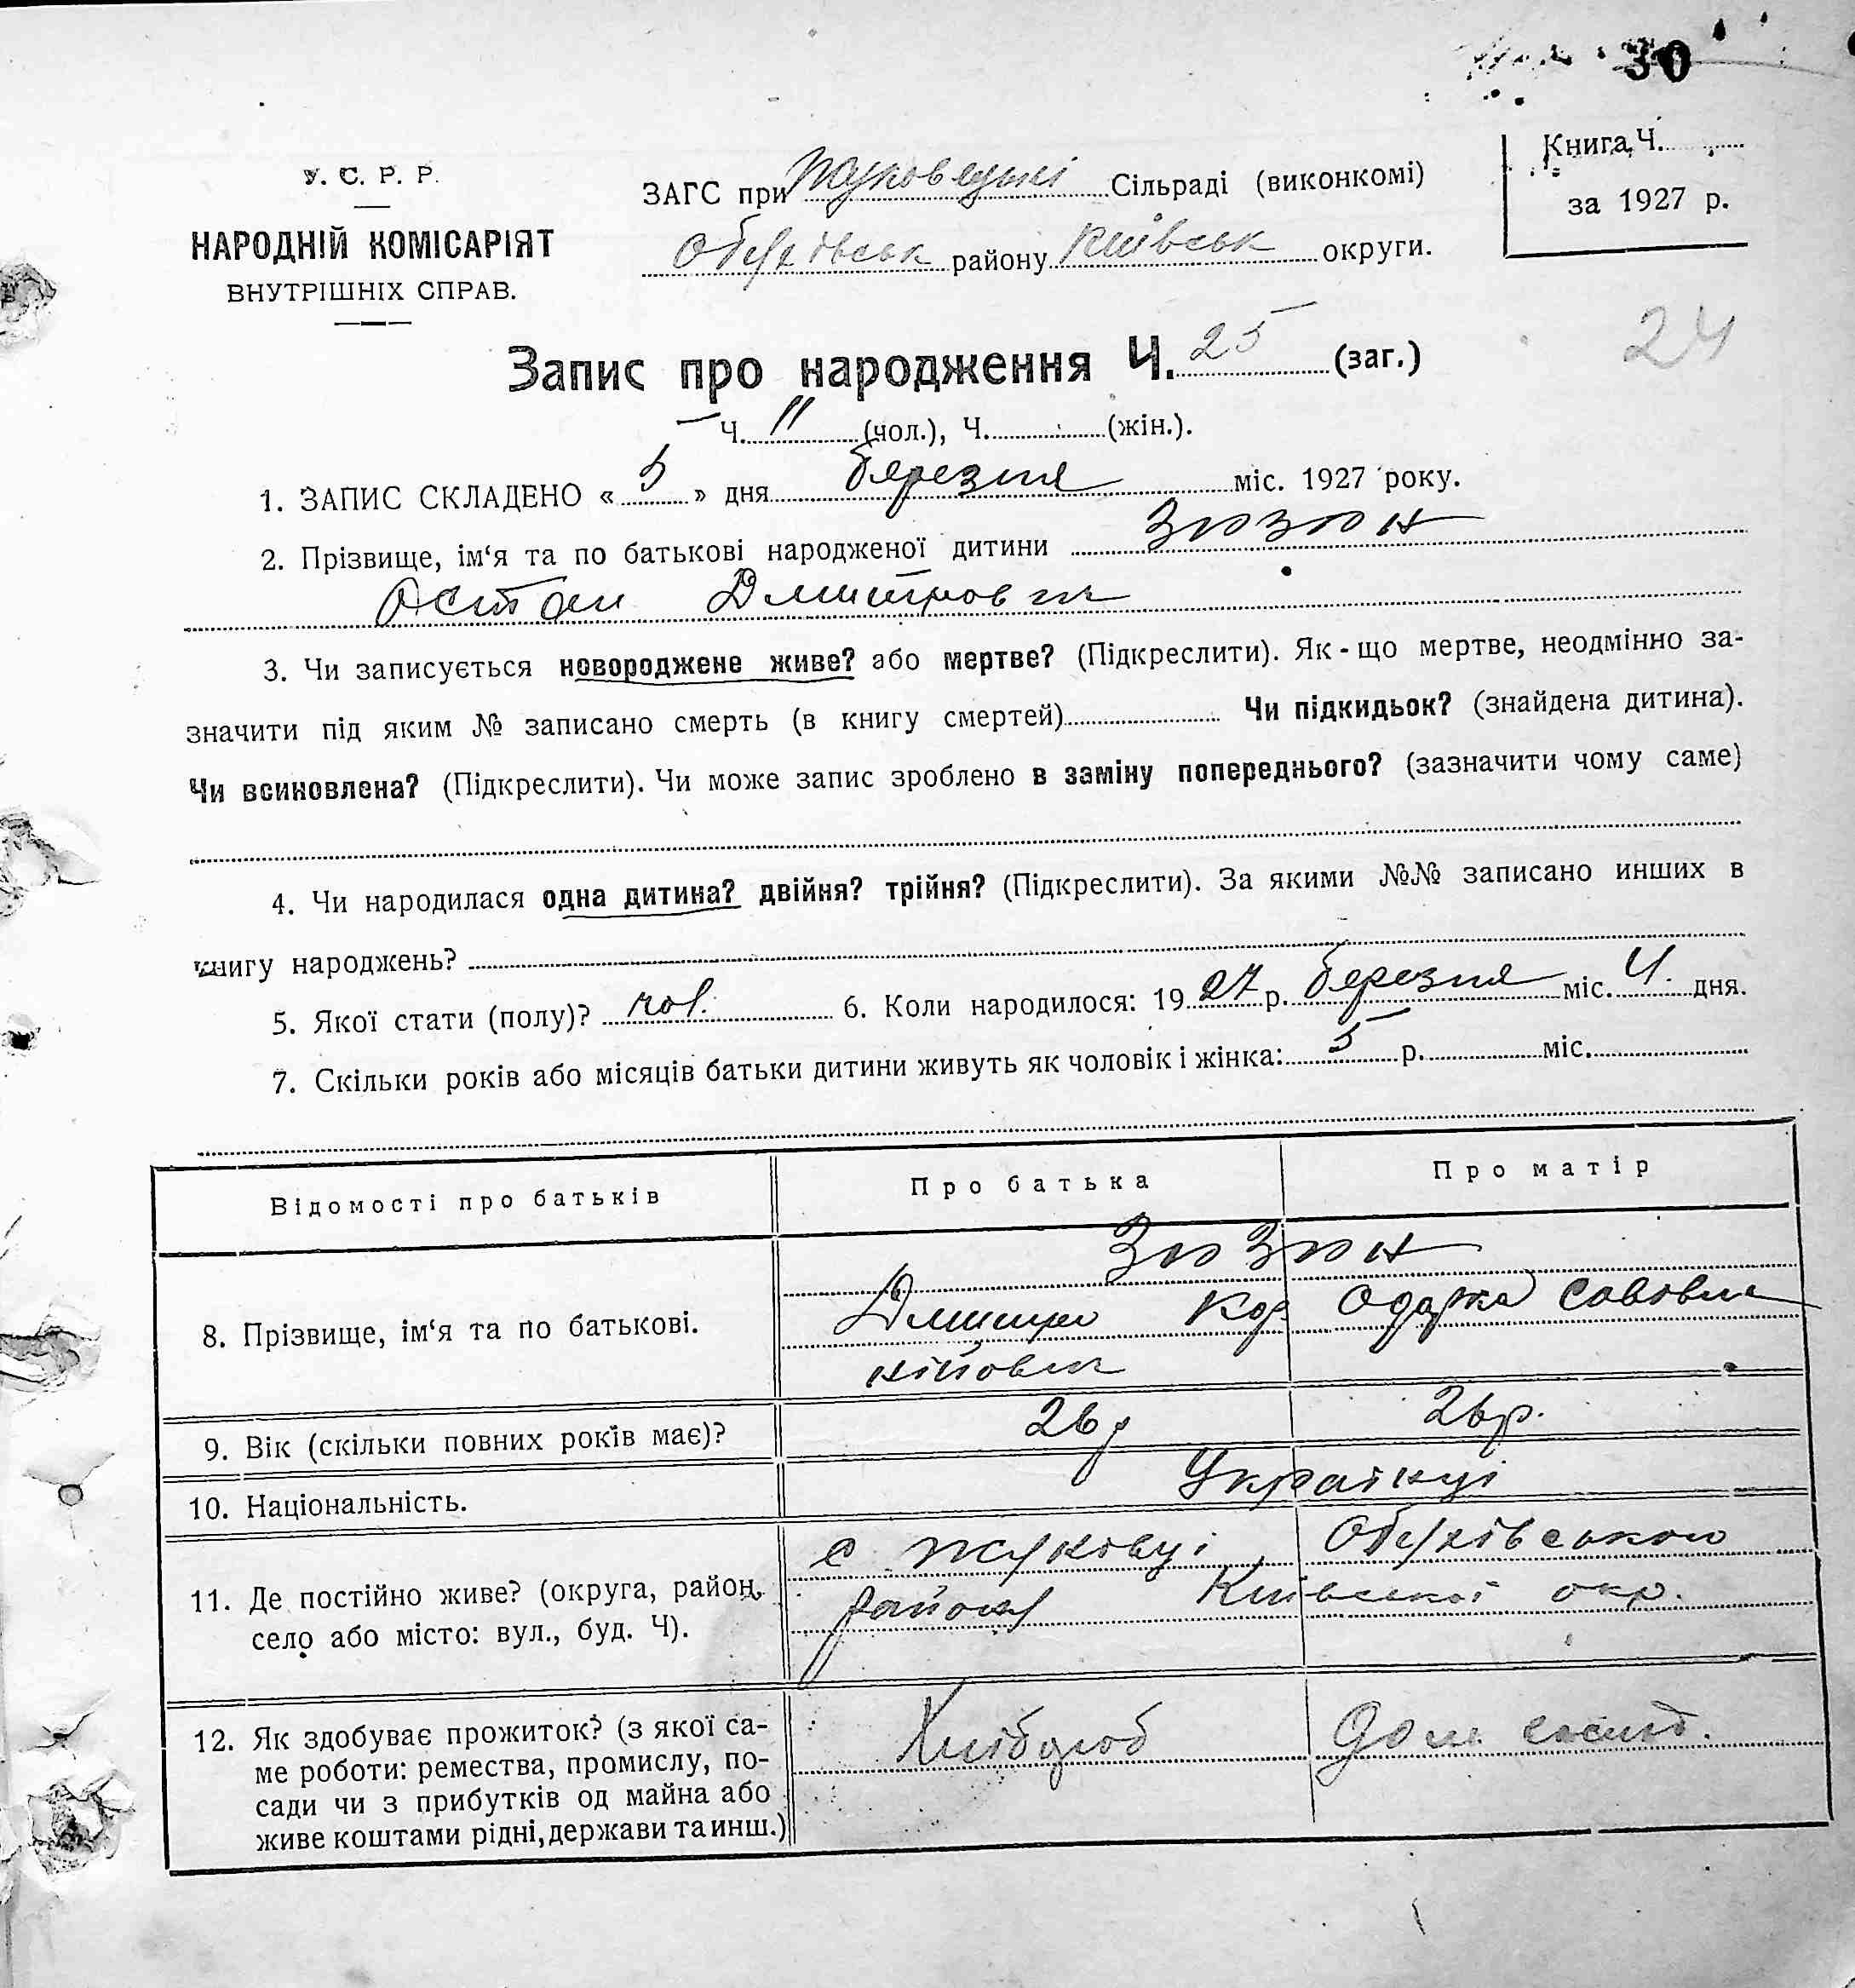 30
У. С. Р. Р.
НАРОДНІЙ КОМІСАРІЯТ
ВНУТРІШНІХ СПРАВ.
ЗАГС при Жуковецькі Сільраді (виконкомі)
Обухівськ району Київськ округи.
Книга Ч.
за 1927 р.
24
Запис про народження Ч. 25 (заг.)
Ч. 11 (чол.), Ч. (жін.).
1. ЗАПИС СКЛАДЕНО « 5 » дня березня міс. 1927 року.
2. Прізвище, ім‘я та по батькові народженої дитини Зюзюн
Остап Дмитрович
3. Чи записується новороджене живе? або мертве? (Підкреслити). Як-що мертве, неодмінно за-
значити під яким № записано смерть (в книгу смертей) Чи підкидьок? (знайдена дитина).
Чи всиновлена? (Підкреслити). Чи може запис зроблено в заміну попереднього? (зазначити чому саме)
4. Чи народилася одна дитина? двійня? трійня? (Підкреслити). За якими №№ записано инших в
книгу народжень?
5. Якої стати (полу)? чол. 6. Коли народилося: 1927 р. березня міс. 4. дня.
7. Скільки років або місяців батьки дитини живуть як чоловік і жінка: 5 р. міс.
Відомості про батьків Про батька Про матір
8. Прізвище, ім‘я та по батькові. Зюзюн
Дмитро Кор Одарка Савовна
нійович
9. Вік (скільки повних років має)? 26 р 26 р.
10. Національність. Українці
11. Де постійно живе? (округа, район, с Жуківці, Обухівського
село або місто: вул., буд. Ч). району Київської окр.
12. Як здобуває прожиток? (з якої са- Хлібороб Дом господ.
ме роботи: ремества, промислу, по-
сади чи з прибутків од майна або
живе коштами рідні, держави та инш.)